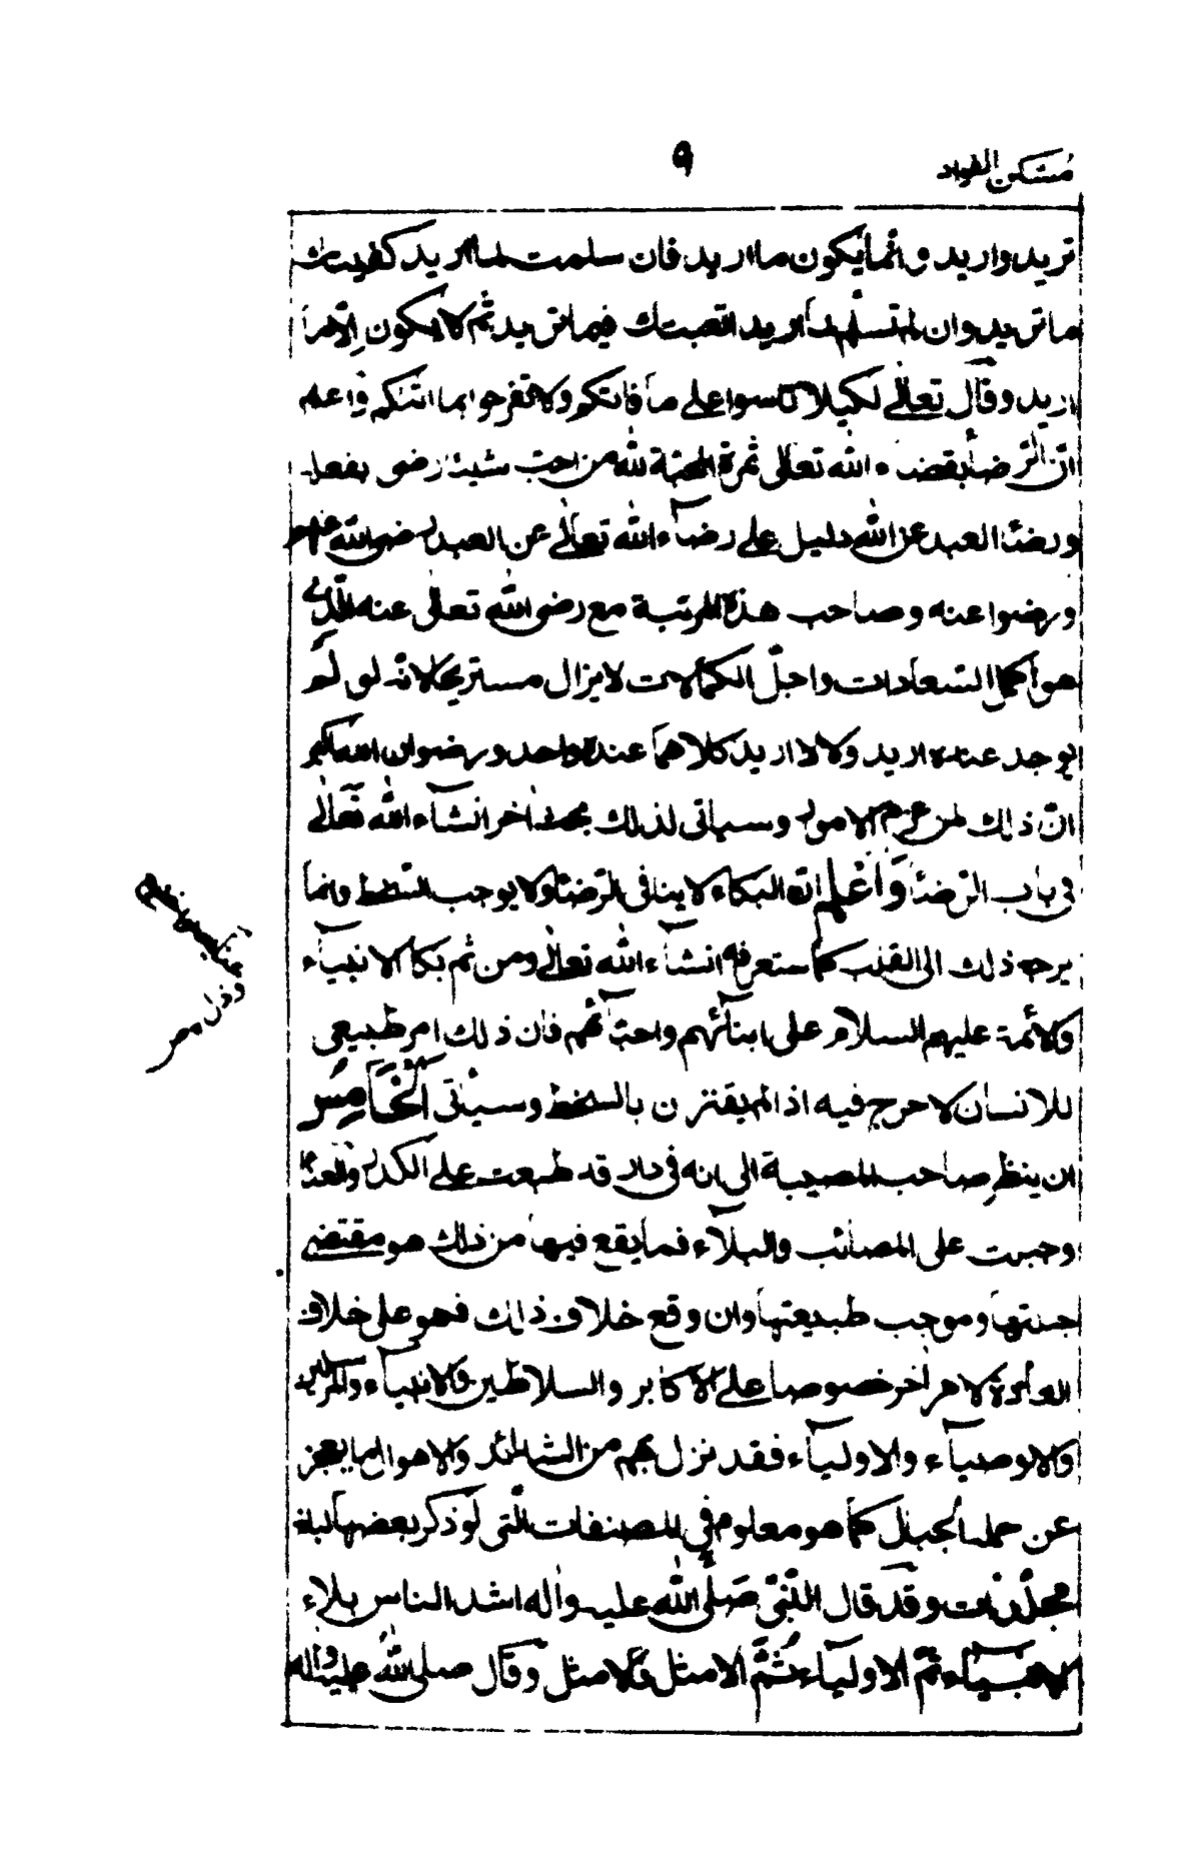 مُسَكن الفواد
٩
تريد واريد وانّما يكون ما اريد فان سلمت لما اريد كفيتك
ما تريد وان لم تسلّم لما اريد اتعبتك فيما تريد ثم لا يكون الّا ما
اريد وقال تعالى لكيلا تاسوا على ما فاتكم ولا تفرحوا بما اتيكم واعلم
انّ الرّضا بقضاء الله تعالى ثمرة المحبّة لله من احبّ شيئا رضى بفعله
ورضا العبد عن الله دليل على رضاء الله تعالى عن العبد رضى الله عنهم
ورضوا عنه وصاحب هذه المرتبة مع رضى الله تعالى عنه الّذى
هو اكمل السّعادات واجلّ الكمالات لا يزال مستريحا لانّه لو لم
يوجد عنده اريد ولا لا اريد كلاهما عنده واحد ورضوان الله اكبر
انّ ذلك لمن عزم الامور وسياتى لذلك بحث اخر انشآء الله تعالى
فى باب الرّضا وَاَعْلم انه البكاء لا ينافى الرّضا ولا يوجب السّخط وانما
يرجع ذلك الى القلب كما ستعرفه انشآء الله تعالى ومن ثم بكآ الانبيآء
والائمة عليهم السلام على ابنآئهم واحبّآئهم فان ذلك امر طبيعى
للانسان لا حرج فيه اذا لم يقترن بالسخط وسياتى اَلْخَامِسُ
ان ينظر صاحب المصيبة الى انه فى دار قد طبعت على الكدر والعنا
وجبرت على المصائب والبلآء فما يقع فيها من ذلك هو مقتضى
جبلتها وموجب طبيعتها وان وقع خلاف ذلك فهو على خلاف
العادة لامر اخر خصوصا على الاكابر والسلاطين والانبيآء والمرسلين
والاوصيآء والاوليآء فقد نزل بهم من الشدائد والاهوال ما يعجز
عن حمله الجبال كما هو معلوم فى المصنفات الّتى لو ذكر بعضها لبلغ
مجلّدات وقد قال النّبىّ صَلّى الله عليه واله اشد الناس بلاء
الانبيآء ثمّ الاوليآء ثُمَّ الامثل فالامثل وقال صلى الله عليه واله